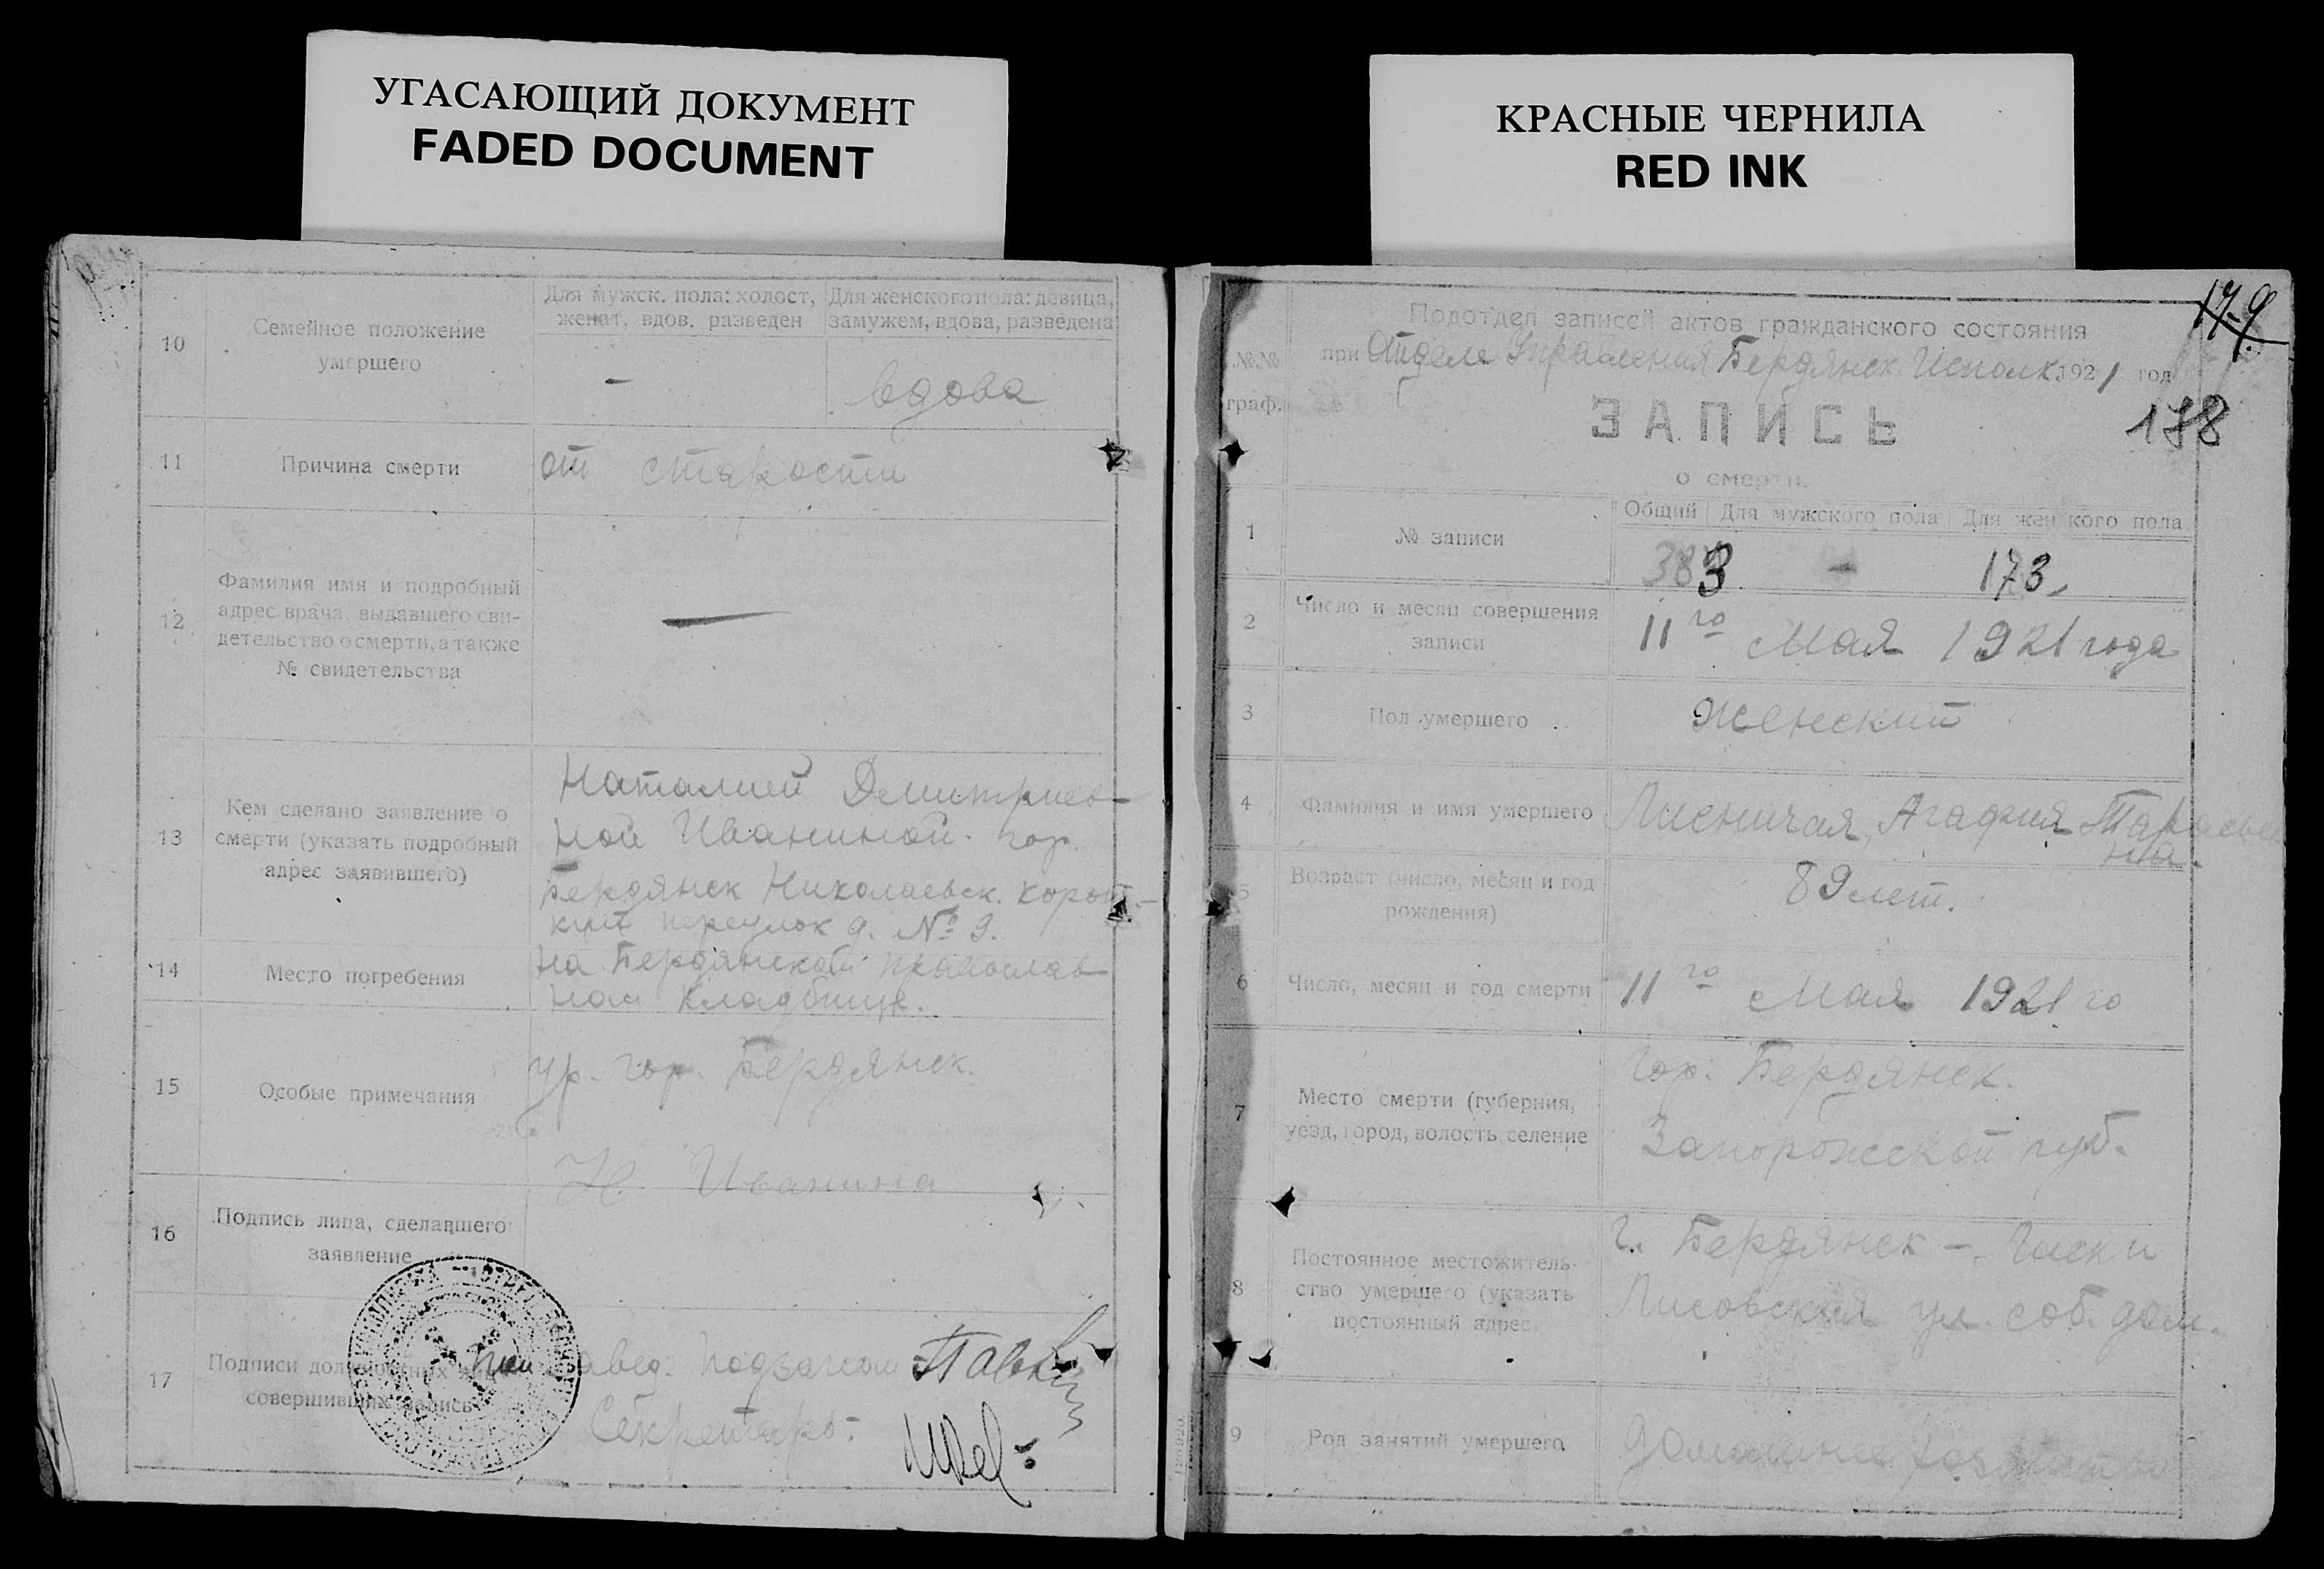 УГАСАЮЩИЙ ДОКУМЕНТ
FADED DOCUMENT
КРАСНЫЕ ЧЕРНИЛА
RED INK
10
Семейное положение
умершего
Для мужск. пола: холост,
женат, вдов. разведен
Для женского пола: девица,
замужем, вдова, разведена
–
вдова
11
Причина смерти
от старости
12
Фамилия имя и подробный
адрес врача, выдавшего сви-
детельство о смерти, а также
№ свидетельства
—
13
Кем сделано заявление о
смерти (указать подробный
адрес заявившего)
Наталией Дмитриев-
ной Иваниной. гор.
Бердянск Николаевск. корот-
кий переулок д. № 9.
14
Место погребения
на Бердянском православ-
ном кладбище.
15
Особые примечания
ур. гор. Бердянск.
Н. Иванина
16
Подпись лица, сделавшего
заявление
17
Подписи должностных лиц
совершивших запись
Завед. Подзагсом
Секретарь:
179
178
№№
граф.
Подотдел записей актов гражданского состояния
при Отделе Управления Бердянск. Исполк. 1921 год
ЗАПИСЬ
о смерти.
1
№ записи
Общий
Для мужского пола
Для женского пола
383
–
173
2
Число и месяц совершения
записи
11го Мая 1921 года
3
Пол умершего
Женский
4
Фамилия и имя умершего
Лисничая, Агафия Тарасьев
на.
5
Возраст (число, месяц и год
рождения)
89 лет.
6
Число, месяц и год смерти
11го Мая 1921 го
7
Место смерти (губерния,
уезд, город, волость, селение
гор. Бердянск.
Запорожской губ.
8
Постоянное местожитель-
ство умершего (указать
постоянный адрес)
г. Бердянск –
Лисовская ул. соб. дом.
9
Род занятий умершего
домашнее хозяйство